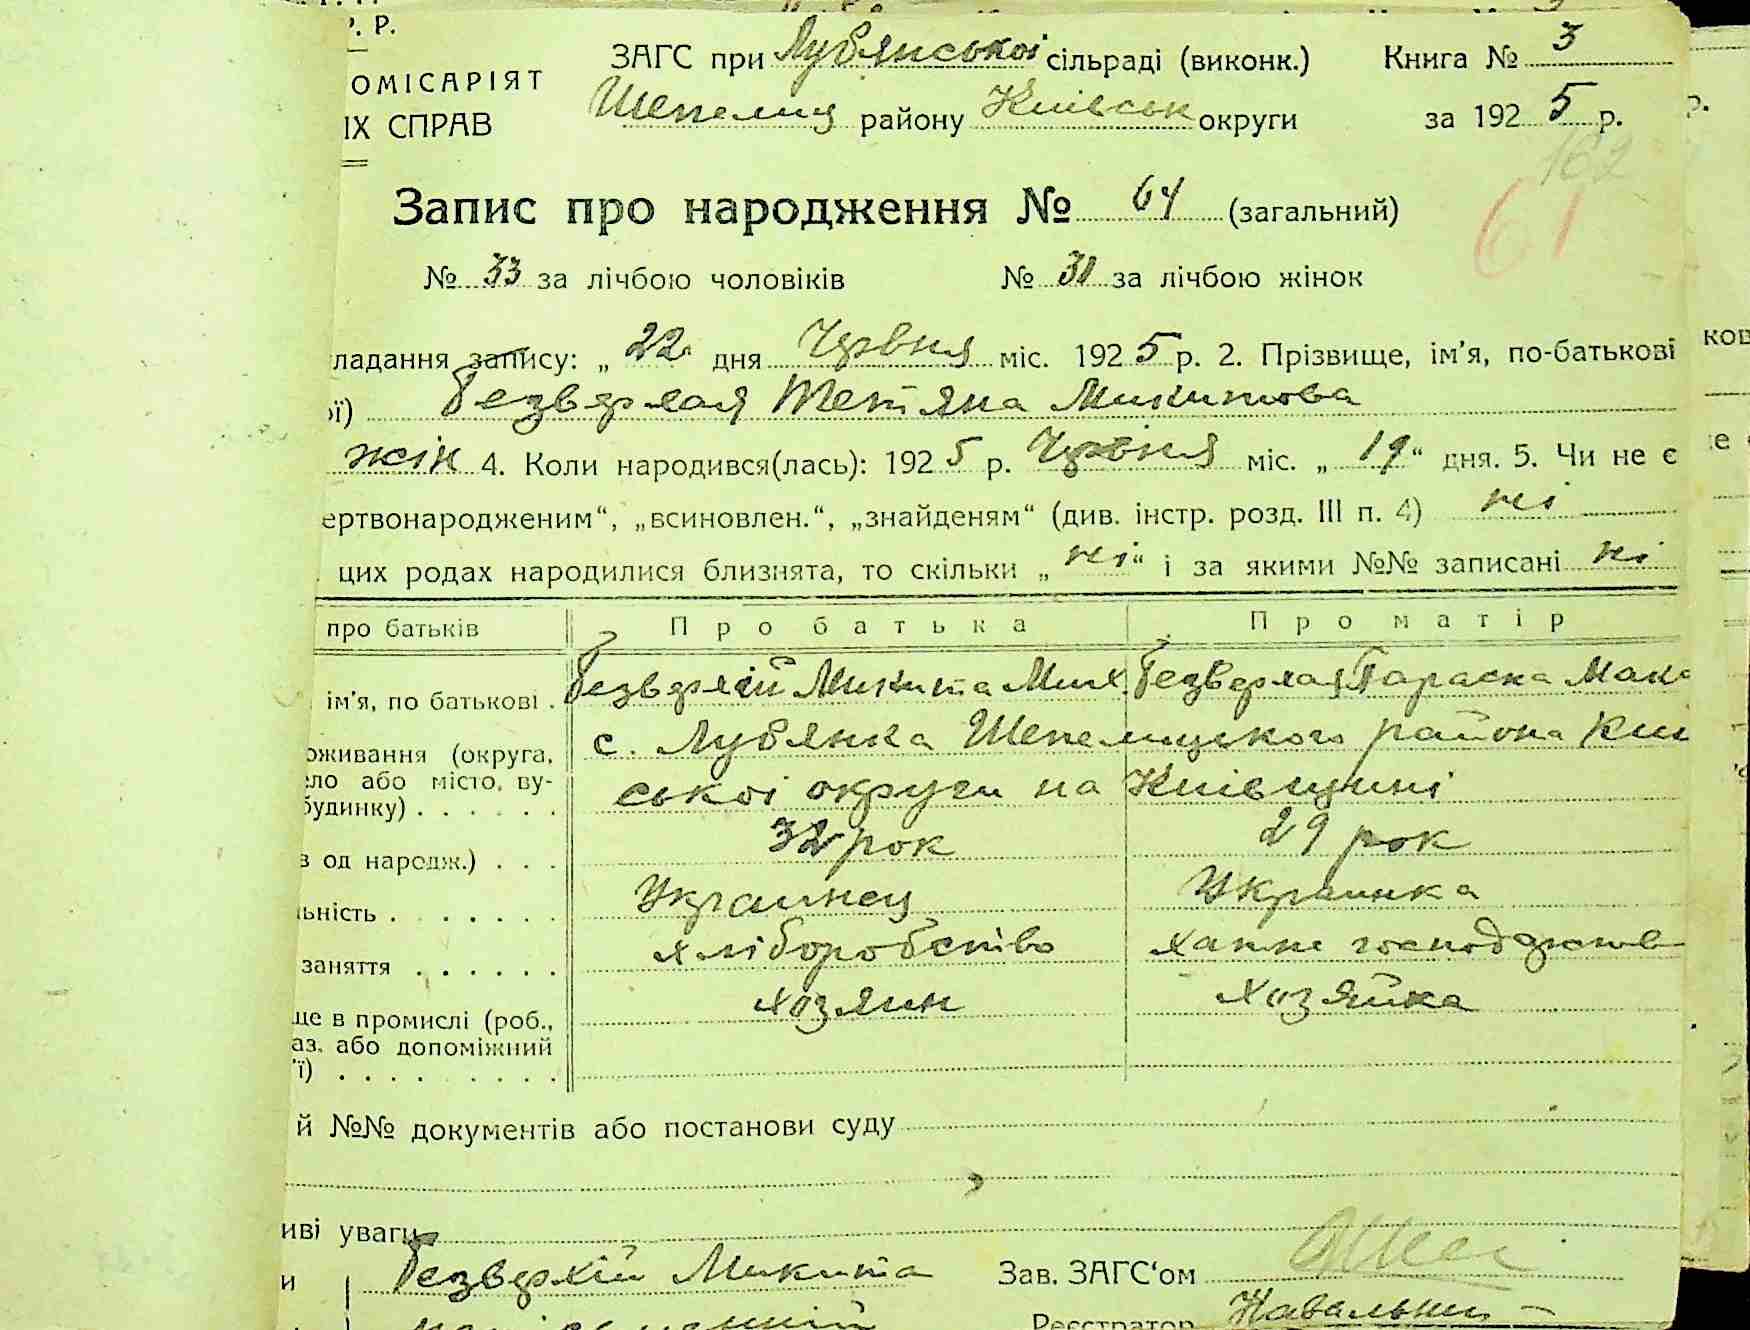 Р. Р.
ОМІСАРІЯТ
ІХ СПРАВ
ЗАГС при Лубянської сільраді (виконк.) Книга № 3
Шепелиц району Київськ округи за 1925 р.
162
61
Запис про народження № 64 (загальний)
№ 33 за лічбою чоловіків № 31 за лічбою жінок
ладання запису: „ 22 дня Червня міс. 1925 р. 2. Прізвище, ім'я, по-батькові
ої) Безверхая Тетяна Микитова
жін 4. Коли народився(лась): 1925 р. Червня міс. „ 19 “ дня. 5. Чи не є
ертвонародженим“, „всиновлен.“, „знайденям“ (див. інстр. розд. III п. 4) ні
цих родах народилися близнята, то скільки „ ні “ і за якими №№ записані ні
про батьків Про батька Про матір
ім'я, по батькові . Безверхій Микита Мих. Безверхая Параска Мака
оживання (округа, с. Лубянка Шепелицкого района Киі
ло або місто, ву-
будинку) . . . . . . ської округи на Київщині
в од народж.) . . . 32 рок 29 рок
ьність . . . . . . . Украинец Украинка
заняття . . . . . . хліборобство хатне господарств
ще в промислі (роб., хозяин хозяйка
аз. або допоміжний
ї) . . . . . . . . .
й №№ документів або постанови суду
иві уваги
и Безверхій Микита Зав. ЗАГС'ом
Реєстратор Навальни